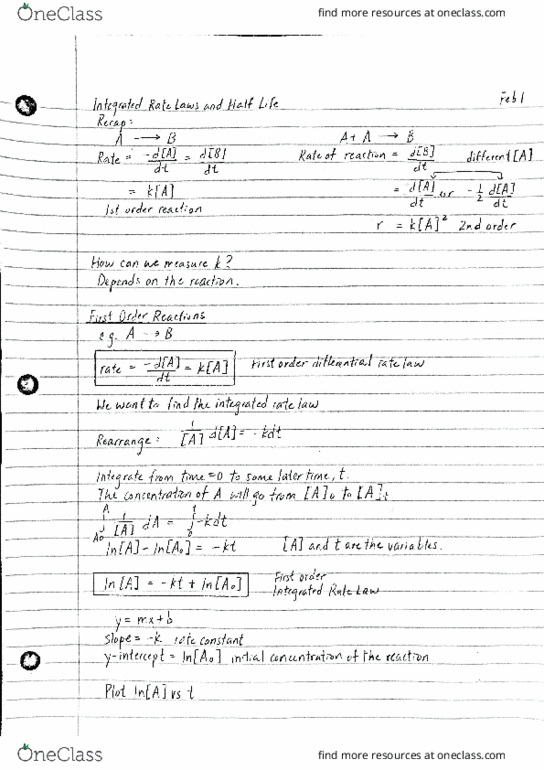 OneClass find more resources at oneclass.com
Feb 1
Integrated Rate Laws and Half Life
Recap:
A → B A + A → B
Rate = -d[A]/dt = d[B]/dt Rate of reaction = d[B]/dt different [A]
= k[A] = d[A]/dt or -1/2 d[A]/dt
1st order reaction r = k[A]² 2nd order
How can we measure k?
Depends on the reaction.
First Order Reactions
e.g. A → B
rate = -d[A]/dt = k[A] First order differential rate law
We want to find the integrated rate law
Rearrange: 1/[A] d[A] = -kdt
Integrate from time = 0 to some later time, t.
The concentration of A will go from [A]₀ to [A]t
∫A₀^A 1/[A] dA = ∫0^t -kdt
ln[A] - ln[A₀] = -kt [A] and t are the variables.
ln[A] = -kt + ln[A₀] First order
Integrated Rate Law
y = mx + b
slope = -k rate constant
y-intercept = ln[A₀] initial concentration of the reaction
Plot ln[A] vs t
OneClass find more resources at oneclass.com